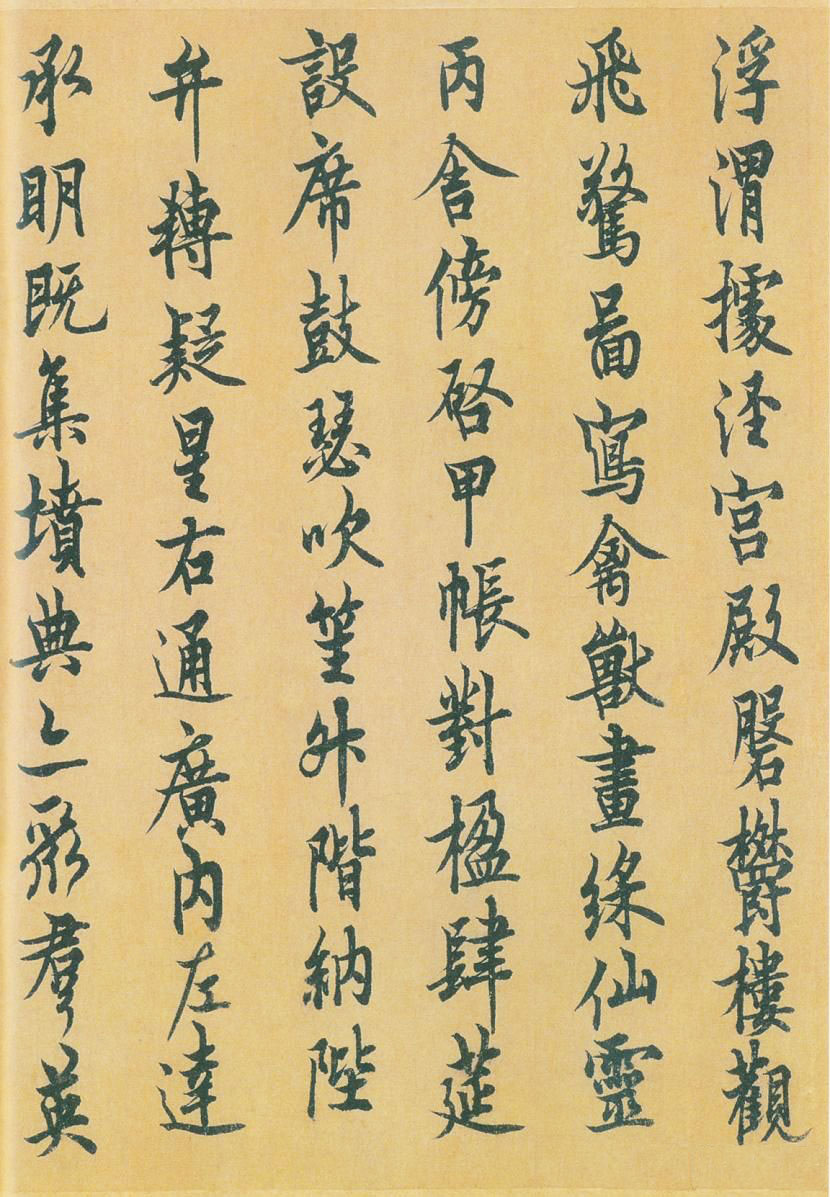 浮渭據泾宫殿磐欝樓觀
飛驚啚寫禽獸畫綵仙靈
丙舍傍啓甲帳對楹肆莚
設席鼓瑟吹笙外階納陛
弁轉疑星右通廣内左達
承明既集墳典亦聚羣英